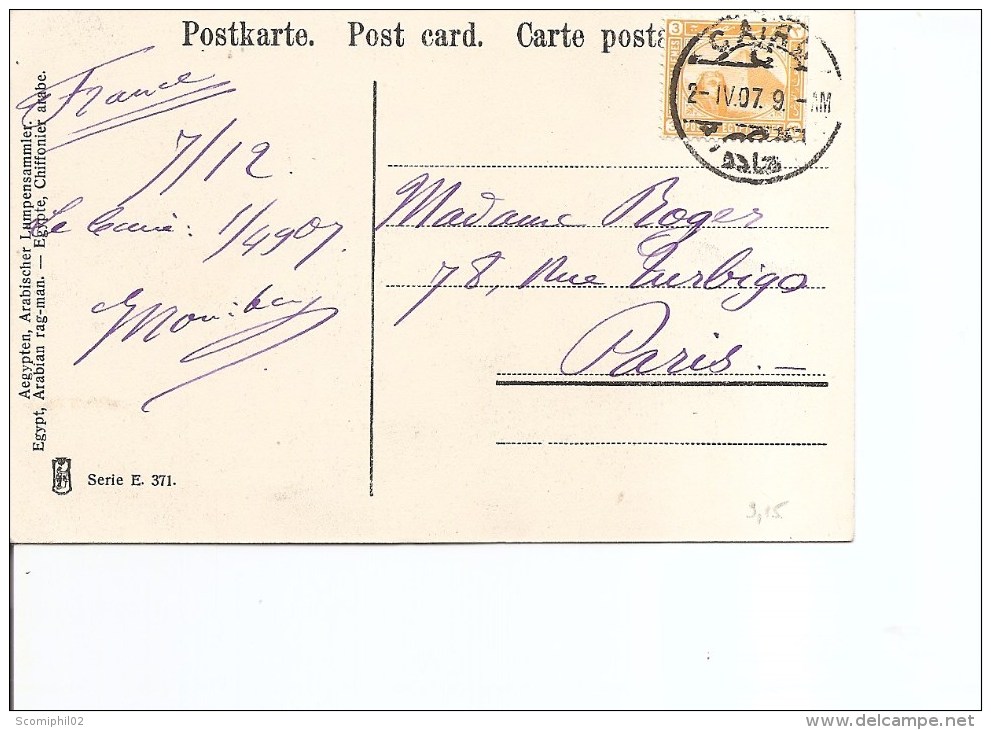 Postkarte. Post card. Carte posta
3
CAIRO
2-IV.07.9.-AM
France
7/12.
Le Caire: 1/4 907.
Madame Roger
78, Rue Turbigo
Paris.—
Aegypten, Arabischer Lumpensammler.
Egypt, Arabian rag-man. — Egypte, Chiffonier arabe.
Serie E. 371.
9,15
Scomiphil02
delcampe.net